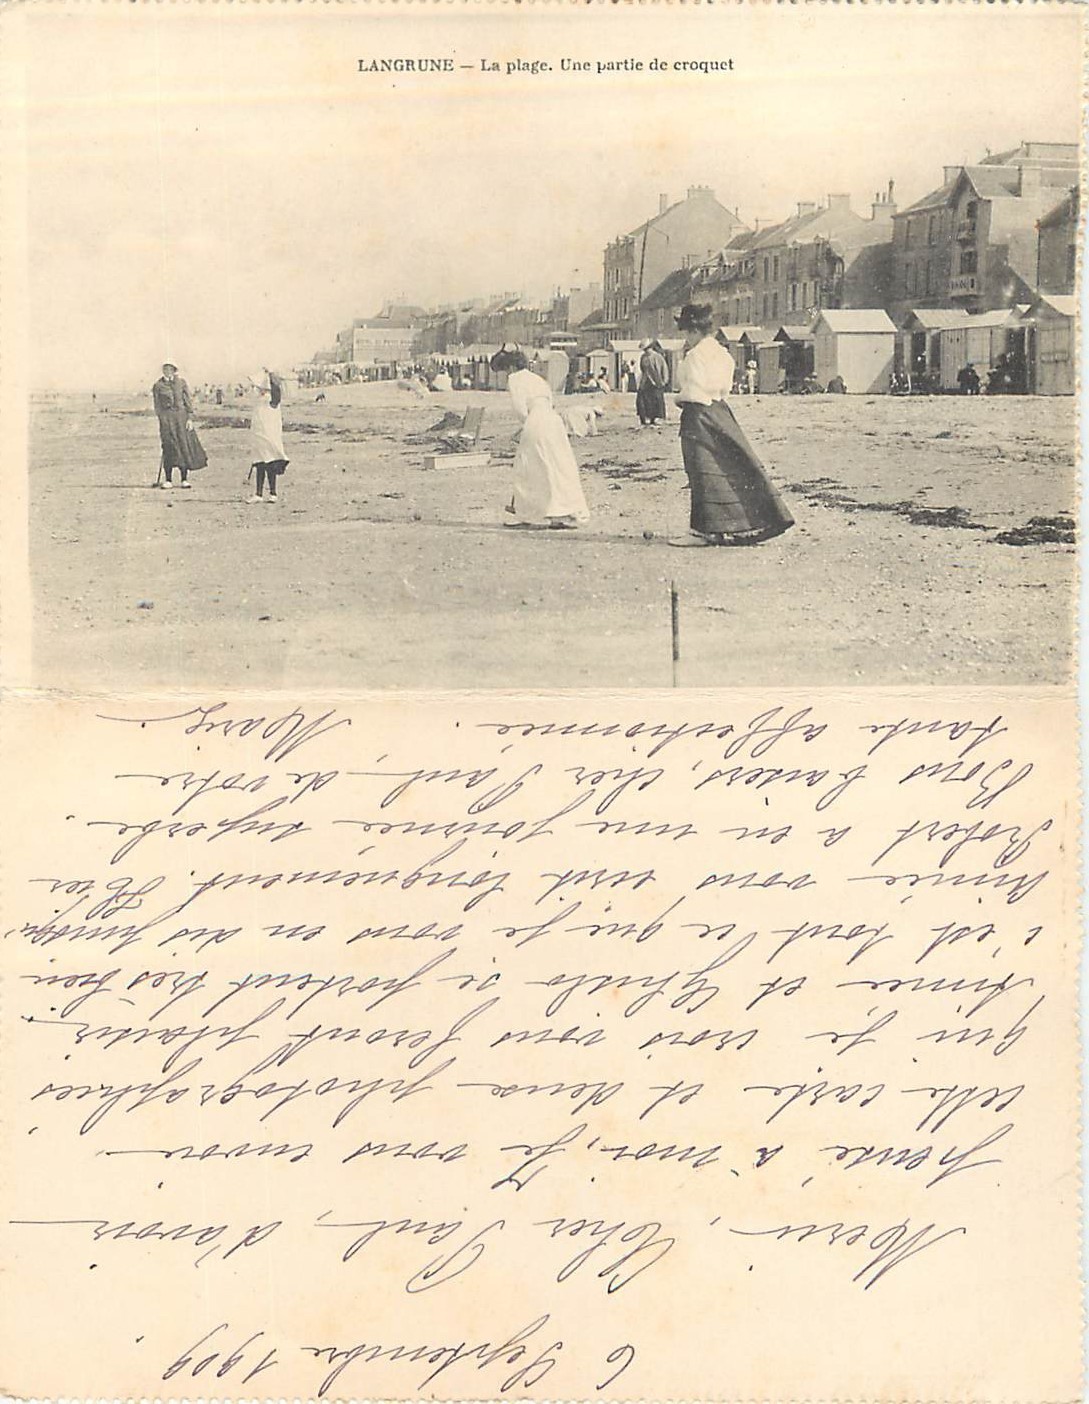 LANGRUNE — La plage. Une partie de croquet
6 Septembre 1909.
Merci, Cher Paul, d'avoir
pensé à moi, Je vous envoie
cette carte et deux photographies
qui je crois vous feront plaisir.
Aimée et se portent très bien
c'est tout ce que je vous en dis puisqu'
Aimée vous écrit longuement. Hier
Robert a eu une journée superbe.
Bons baisers, cher Paul, de votre
tante affectionnée. Marie